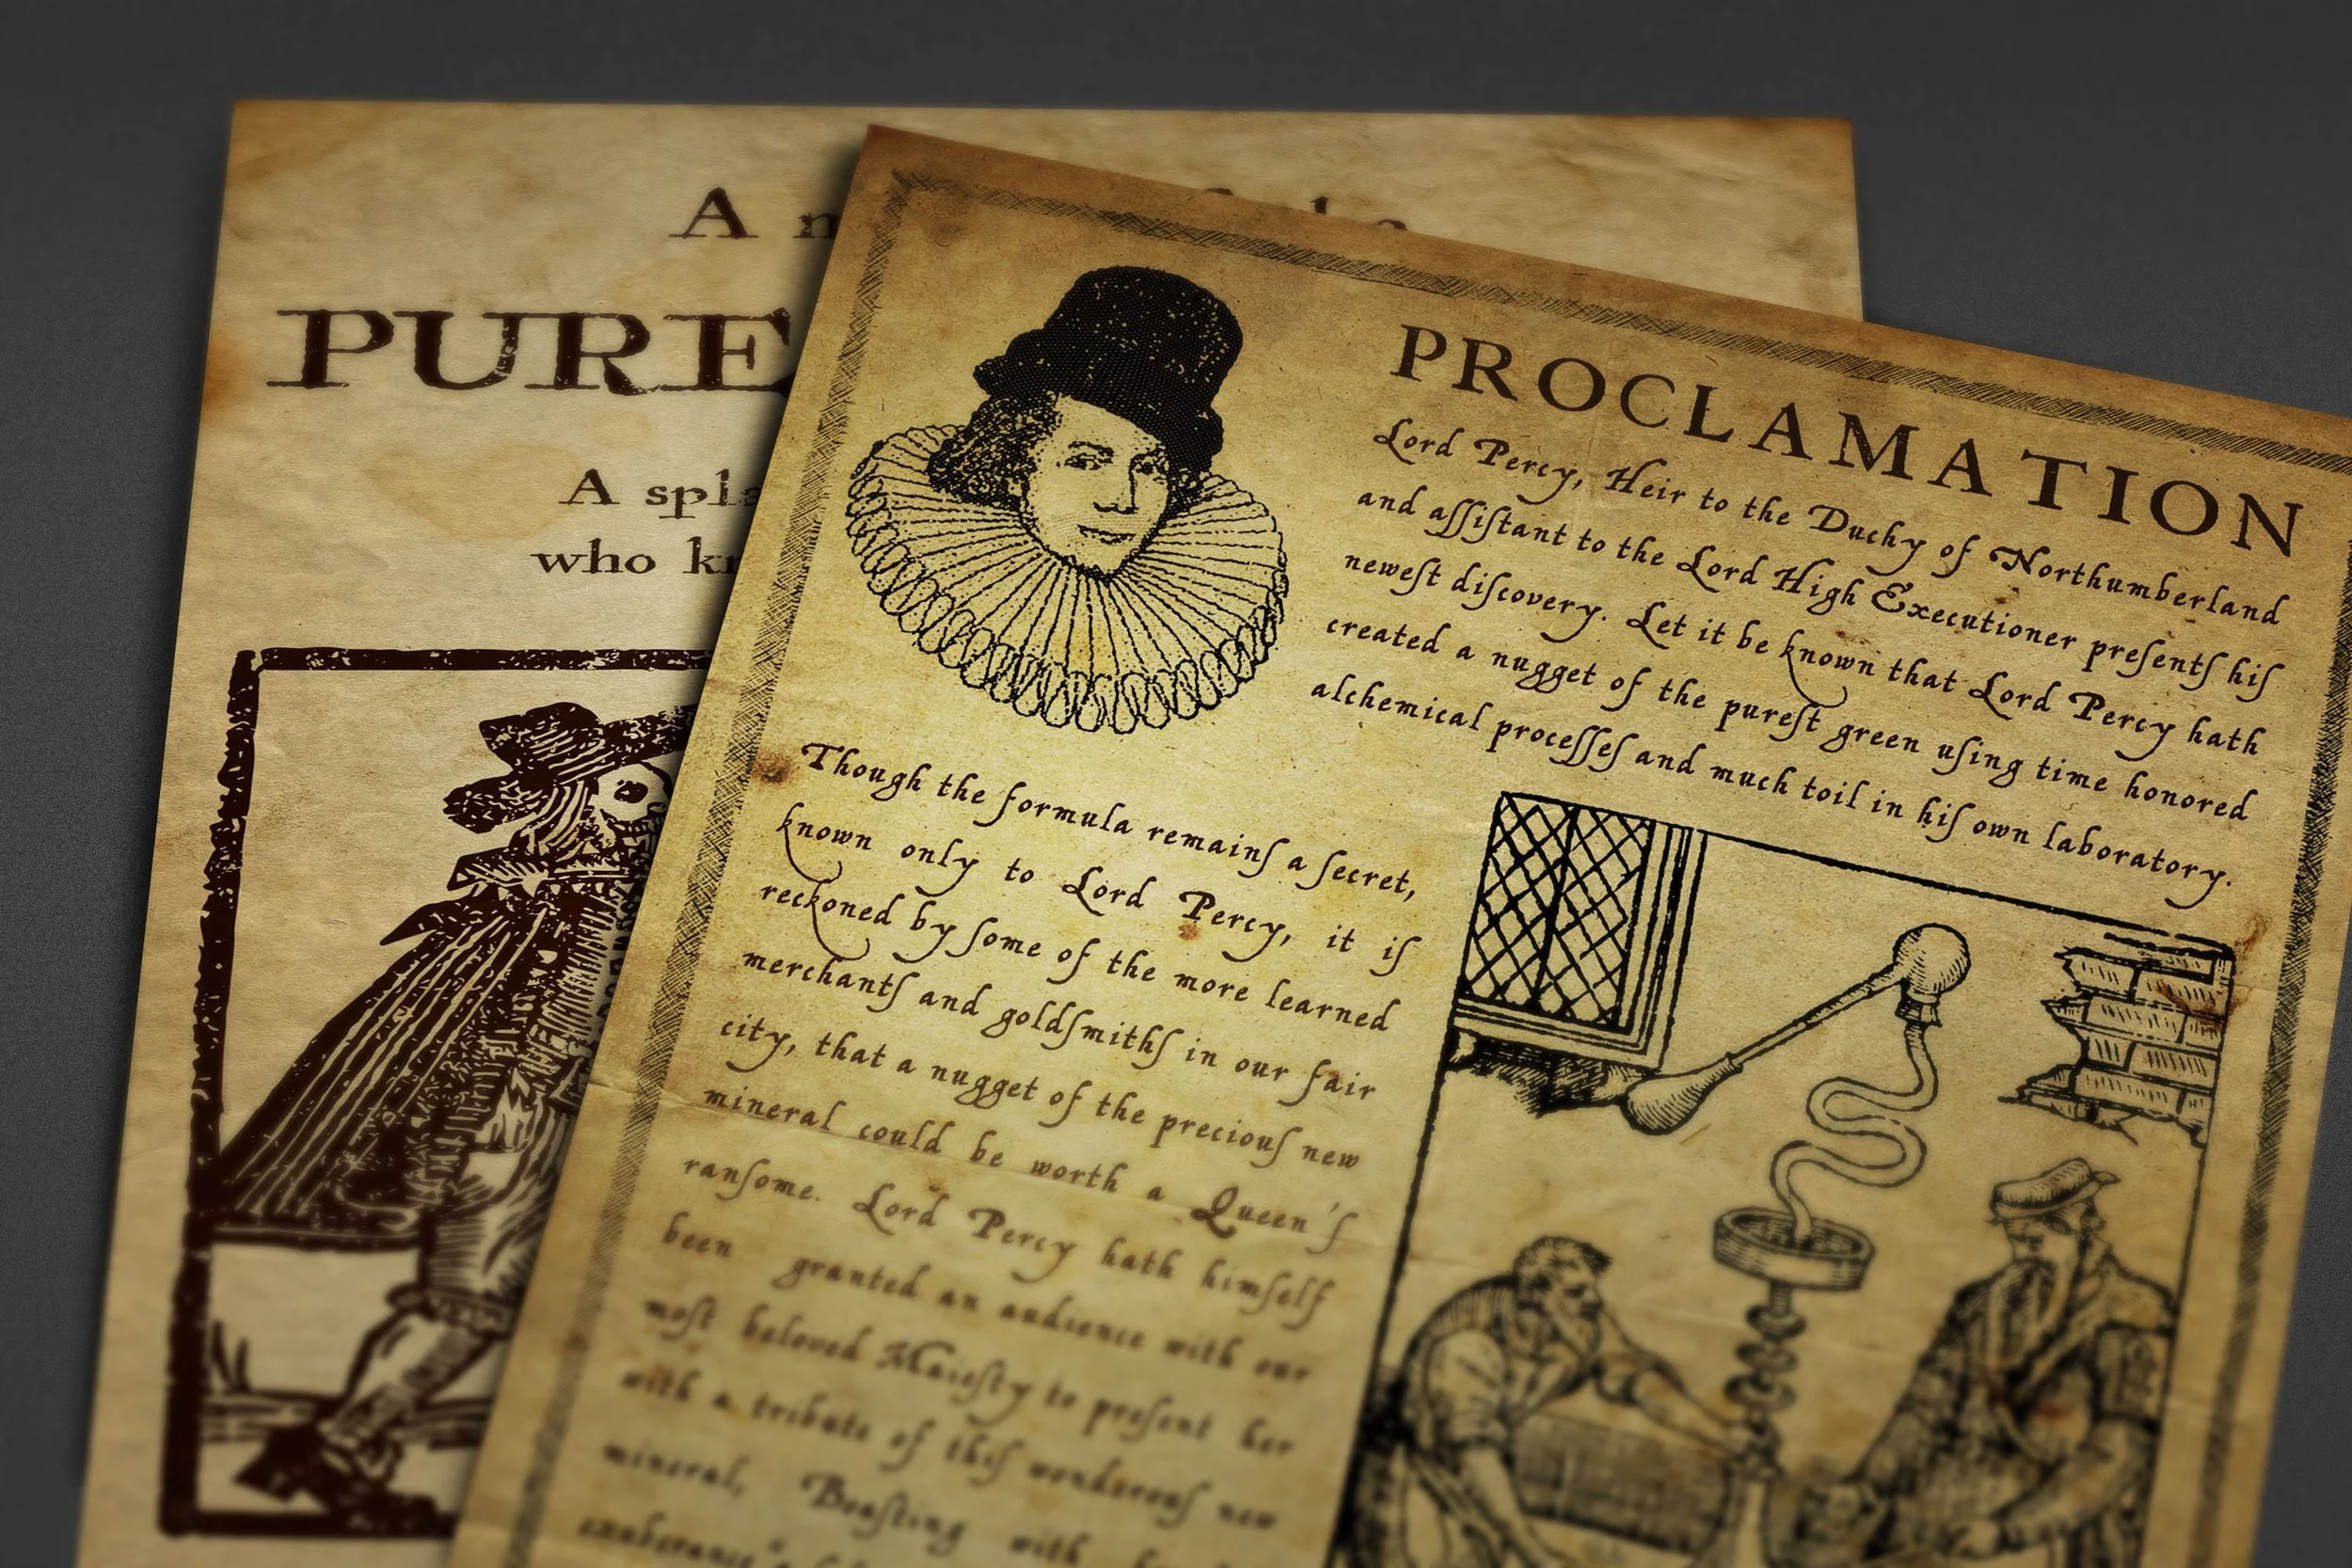 A
PURE
A
who
PROCLAMATION
Lord Percy, Heir to the Duchy of Northumberland
and aſſiſtant to the Lord High Executioner preſentſ hiſ
neweſt diſcovery. Let it be known that Lord Percy hath
created a nugget of the pureſt green uſing time honored
alchemical proceſſeſ and much toil in hiſ own laboratory.
Though the formula remainſ a ſecret,
known only to Lord Percy, it iſ
reckoned by ſome of the more learned
merchantſ and goldſmithſ in our fair
city, that a nugget of the preciouſ new
mineral could be worth a Queen'ſ
ranſome. Lord Percy hath himſelf
been granted an audience with our
moſt beloved Maieſty to preſent her
with a tribute of thiſ wonderouſ new
mineral, Boaſting with